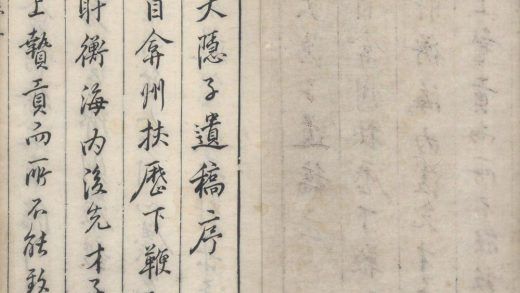 大隱子遺稿序
自弇州挾歷下鞭
衡海內後先才子
贄貢而所不能致